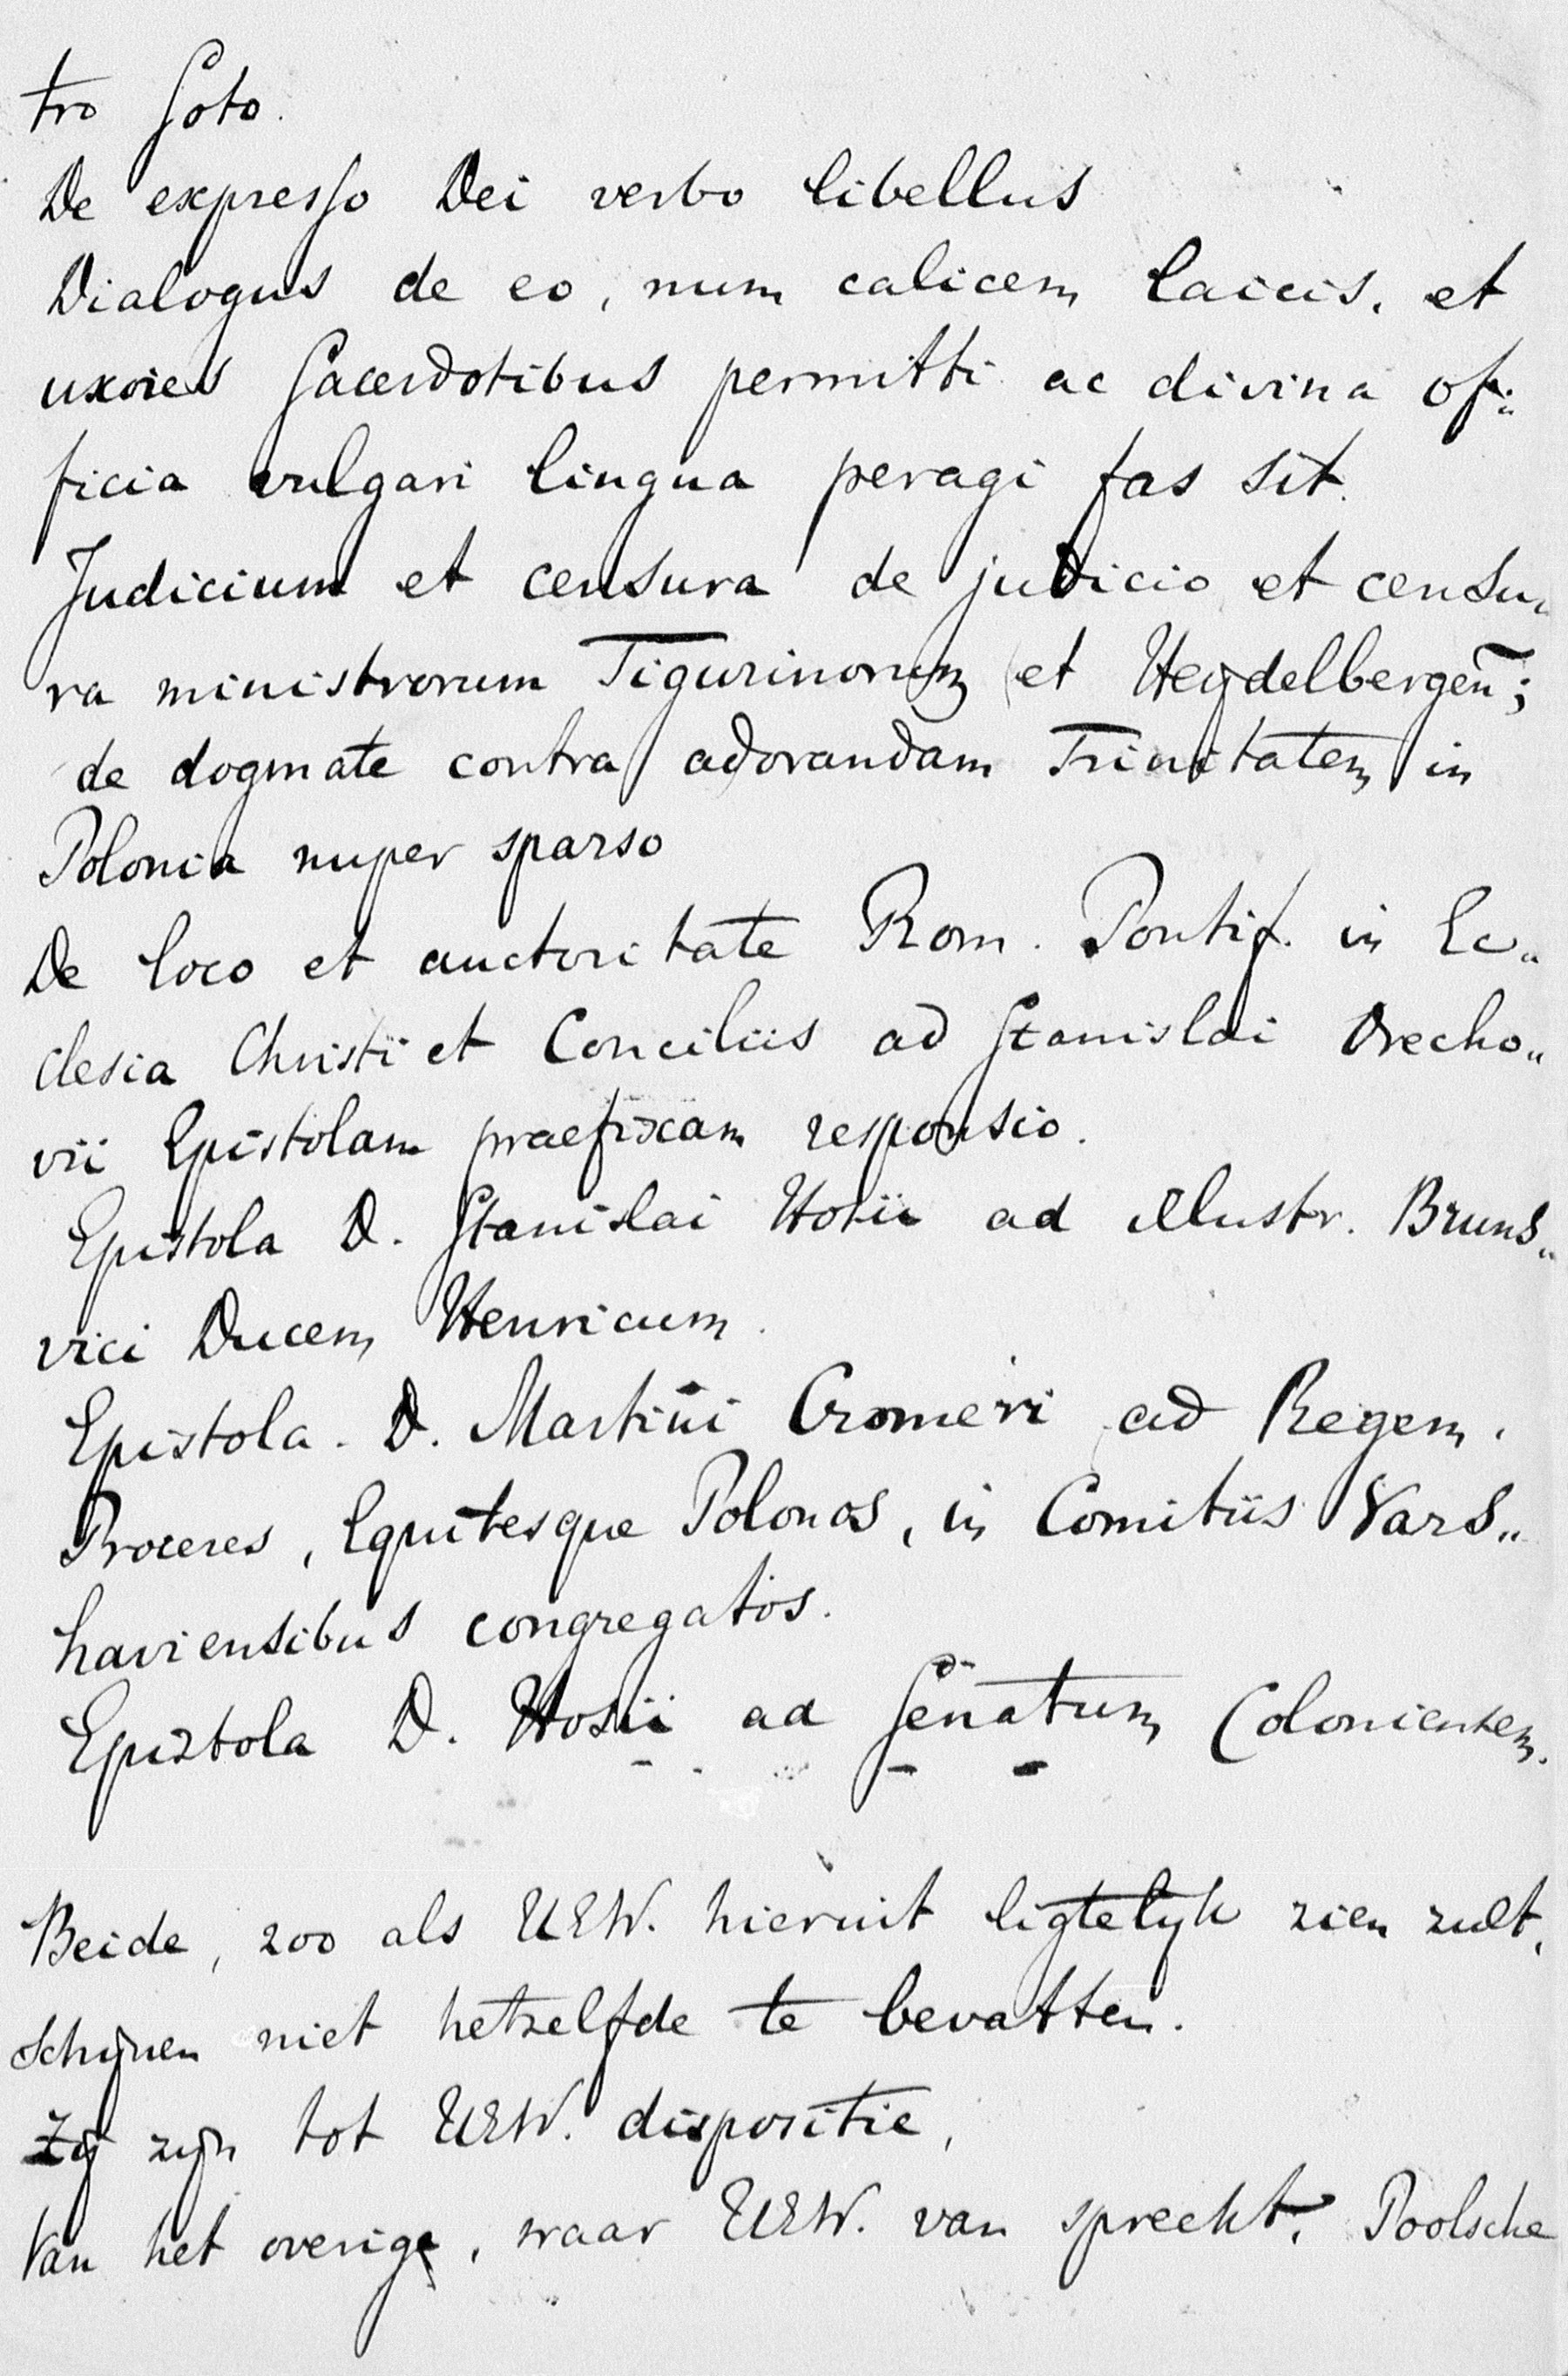 tro Soto.
De expresso Dei verbo libellus
Dialogus de eo, num calicem laicis, et
uxores Sacerdotibus permitti ac divina of„
ficia vulgari lingua peragi fas sit.
Judicium et censura de judicio et censu„
ra ministrorum Tigurinorum et Heydelbergen̄;
de dogmate contra adorandam Trinitatem in
Polonia nuper sparso
De loco et auctoritate Rom. Pontif. in Ec„
clesia Christi et Conciliis ad Stanislai Orecho„
vii Epistolam praefixam responsio.
Epistola D. Stanislai Hosii ad illustr. Bruns„
vici Ducem Henricum.
Epistola D. Martini Cromeri ad Regem,
Proceres, Equitesque Polonos, in Comitiis Vars„
haviensibus congregatos.
Epistola D. Hosii ad Senatum Coloniensem.
Beide, zoo als UEW. hieruit ligtelyk zien zult,
schijnen niet hetzelfde te bevatten.
Zij zijn tot UEW. dispositie,
Van het overige, waar UEW. van spreekt, Poolsche